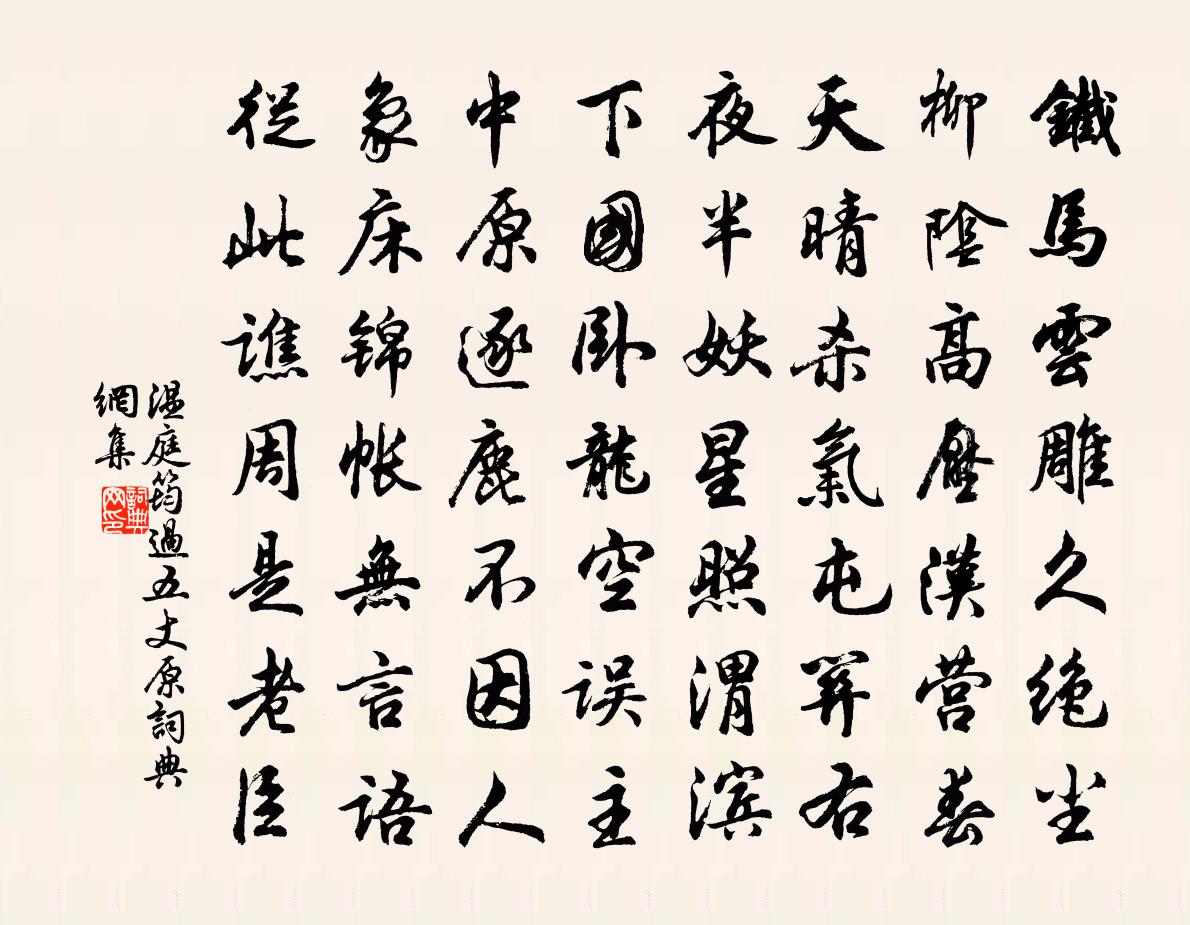 鐵馬雲雕久绝尘
柳陰高壓漢营春
天晴杀氣屯關右
夜半妖星照渭滨
下國卧龍空误主
中原逐鹿不因人
象床锦帐無言语
從此譙周是老臣
温庭筠過五丈原詞典
網集
詞典网印